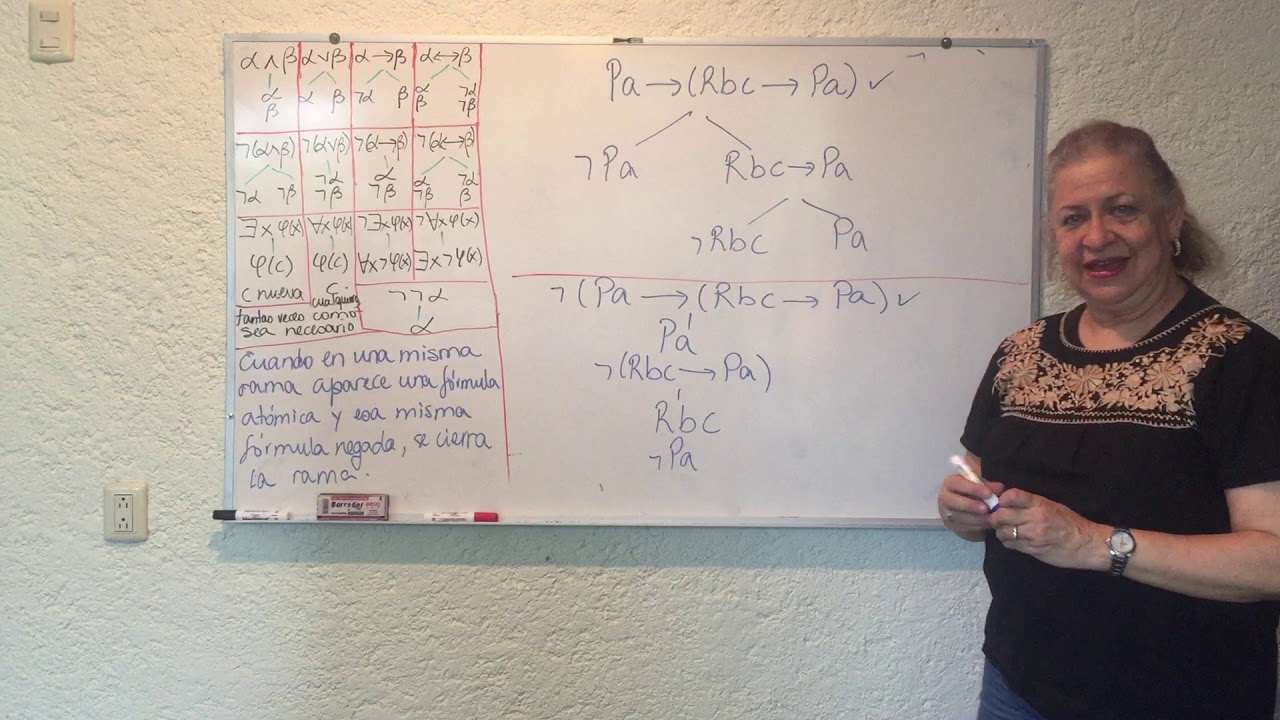 α ∧ β α ∨ β α → β α ↔ β
α α β ¬α β α ¬α
β β ¬β
¬(α∧β) ¬(α∨β) ¬(α→β) ¬(α↔β)
¬α ¬β ¬α α α ¬α
¬β ¬β ¬β β
∃xφ(x) ∀xφ(x) ¬∃xφ(x) ¬∀xφ(x)
φ(c) φ(c) ∀x¬φ(x) ∃x¬φ(x)
c nueva c
cualquiera
tantas veces como
sea necesario
¬¬α
α
Cuando en una misma
rama aparece una fórmula
atómica y esa misma
fórmula negada, se cierra
la rama.
Borrador
Pa → (Rbc → Pa) ✓
¬Pa Rbc → Pa
¬Rbc Pa
¬(Pa → (Rbc → Pa) ✓
Pa
¬(Rbc → Pa)
Rbc
¬Pa